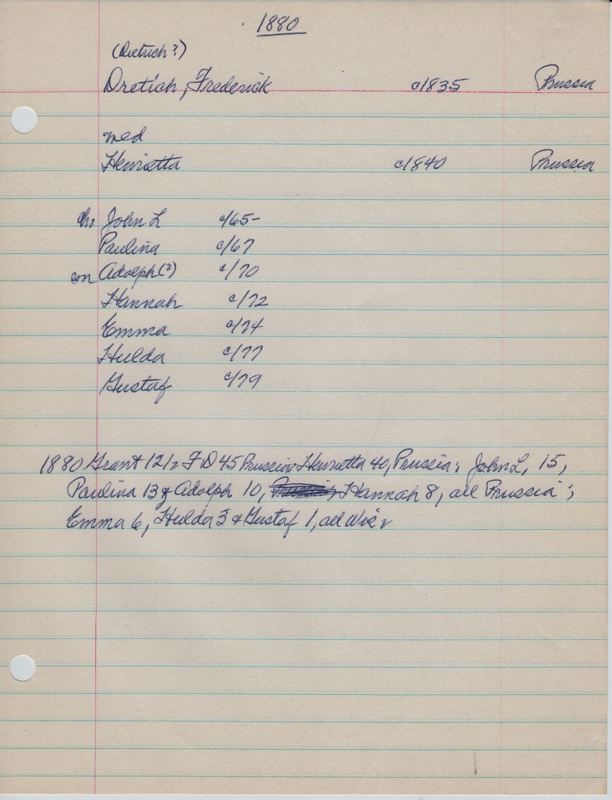 1880
(Dietrich?)
Dretich, Frederick c1835 Prussia
med
Henrietta c1840 Prussia
ch: John L c/65-
Paulina c/67
son Adolph(?) c/70
Hannah c/72
Emma c/74
Hulda c/77
Gustaf c/79
1880 Grant 121: F D 45 Prussia; Henrietta 40, Prussia; John L, 15,
Paulina 13 & Adolph 10, Hannah 8, all Prussia;
Emma 6, Hulda 3 & Gustaf 1, all Wis.